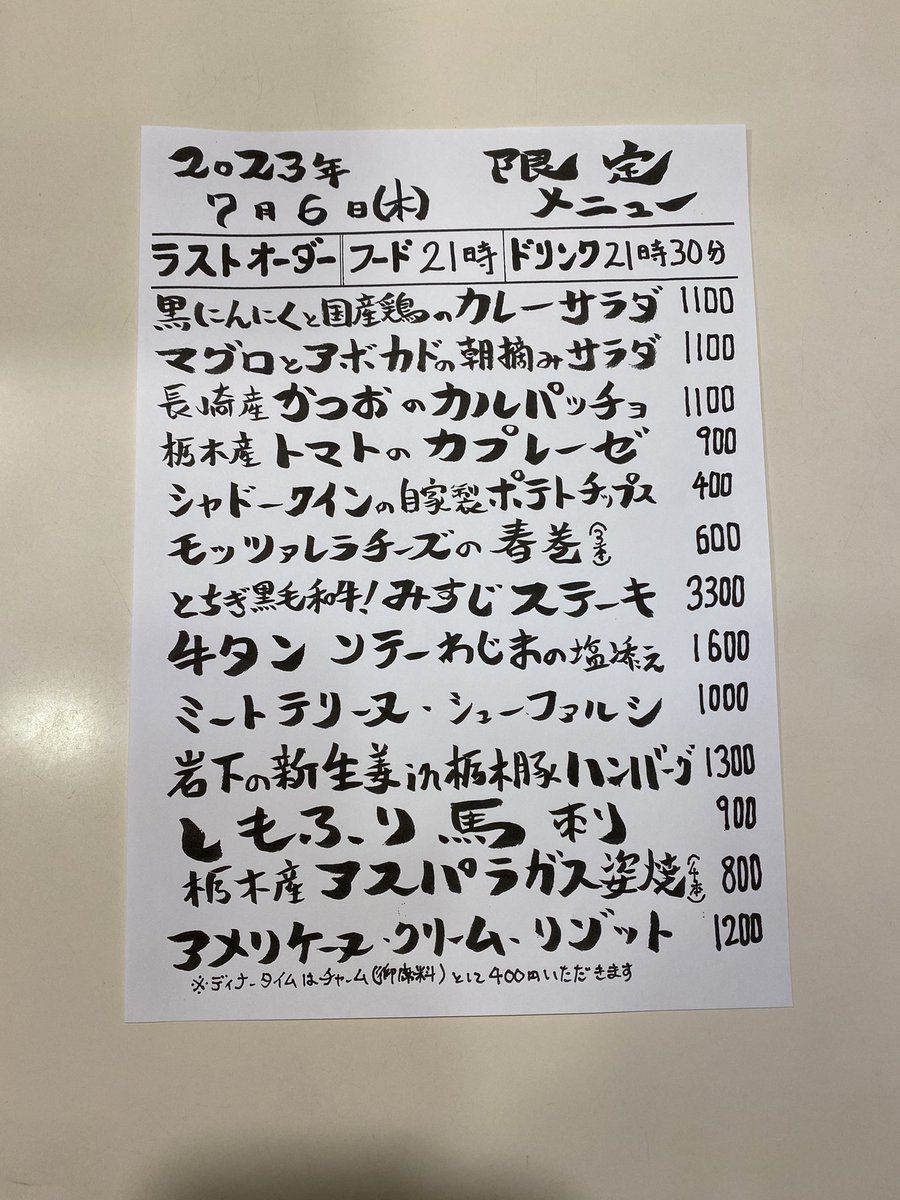 2023年
7月6日(木)
限定
メニュー
ラストオーダー フード21時 ドリンク21時30分
黒にんにくと国産鶏のカレーサラダ 1100
マグロとアボカドの朝摘みサラダ 1100
長崎産かつおのカルパッチョ 1100
栃木産トマトのカプレーゼ 900
シャドークインの自家製ポテトチップス 400
モッツァレラチーズの春巻 600
とちぎ黒毛和牛!みすじステーキ 3300
牛タンソテーわじまの塩添え 1600
ミートテリーヌ・シューファルシ 1000
岩下の新生姜in栃木豚ハンバーグ 1300
しもふり馬刺 900
栃木産アスパラガス姿焼(4本) 800
アメリケーヌ・クリーム・リゾット 1200
※ディナータイムはチャーム(御席料)として400円いただきます